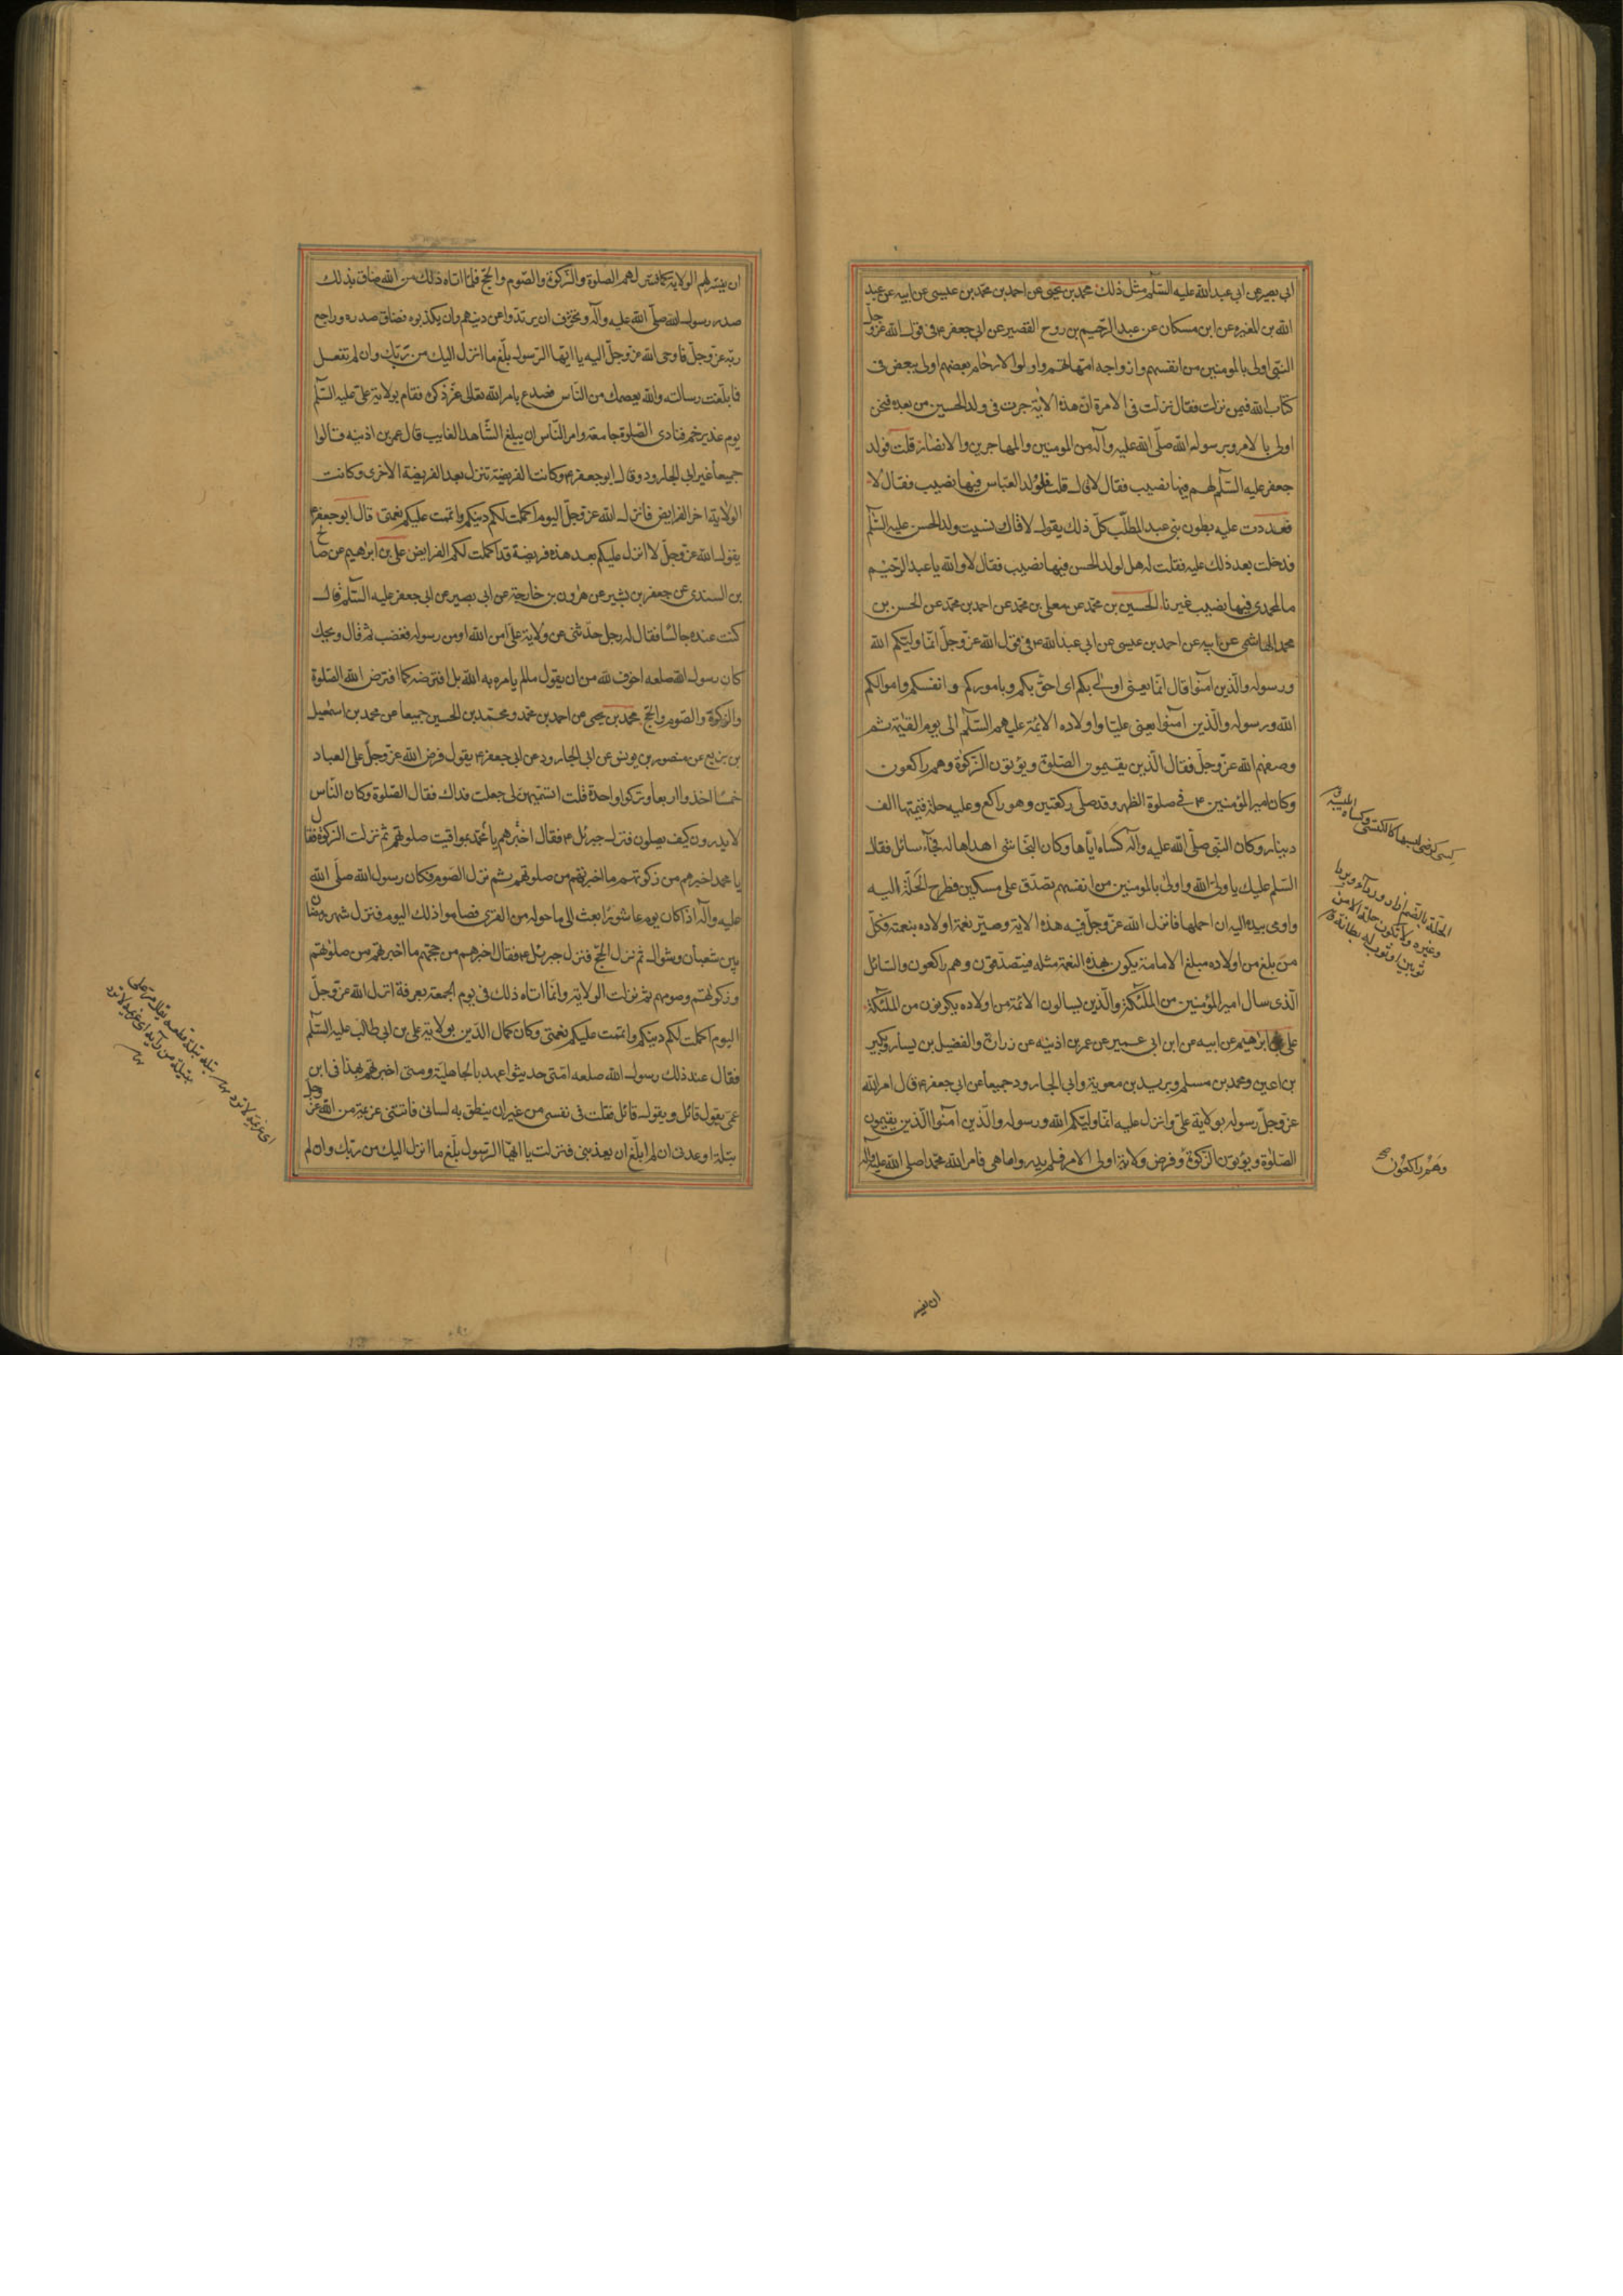 ابي بصير عن ابي عبدالله عليه السّلم مثل ذلك محمد بن يحيى عن احمد بن محمد بن عيسى عن ابيه عن عبد
الله بن المغيره عن ابن مسكان عن عبد الرّحيم بن روح القصير عن ابي جعفر ع في قول الله عزّ وجلّ
النبّى اولى بالمومنين من انفسهم وازواجه امّهاتهم واولوا الارحام بعضهم اولى ببعض فى
كتاب الله فيمن نزلت فقال نزلت فى الامرة انّ هذه الاية جرت فى ولد الحسين من بعده فنحن
اولى بالامر وبرسول الله صلّى الله عليه وآله من المومنين والمهاجرين والانصار قلت فولد
جعفر عليه السّلم لهم فيها نصيب فقال لا قال قلت فلولد العبّاس فيها نصيب فقال لا
فعددت عليه بطون بنى عبد المطّلب كلّ ذلك يقول لا قال ونسيت ولد الحسن عليه السّلم
فدخلت بعد ذلك عليه فقلت له هل لولد الحسن فيها نصيب فقال لا والله يا عبد الرّحيم
ما لمحمدى فيها نصيب غيرنا الحسين بن محمّد عن معلى بن محمّد عن احمد بن محمّد عن الحسن بن
محمد الهاشمى عن ابيه عن احمد بن عيسى عن ابي عبدالله ع فى قول الله عزّ وجلّ انّما وليّكم الله
ورسوله والّذين آمنوا قال انّما يعنى اولى بكم اى احقّ بكم وباموركم وانفسكم واموالكم
الله ورسوله والّذين آمنوا يعنى عليّا واولاده الائمّة عليهم السّلم الى يوم القيٰمة ثم
وصفهم الله عزّ وجلّ فقال الّذين يقيمون الصّلوة ويؤتون الزّكوة وهم راكعون
وكان امير المؤمنين ع فى صلوة الظهر وقد صلّى ركعتين وهو راكع وعليه حلة قيمتها الف
دينار وكان النبّى صلّى الله عليه وآله كساه ايّاها وكان النجاشى اهداها له فجآء سائل فقال
السّلم عليك يا ولىّ الله واولى بالمومنين من انفسهم تصدّق على مسكين فطرح الحلّة اليه
واومى بيده اليه ان احملها فانزل الله عزّ وجلّ فيه هذه الاية وصيّر نعمة اولاده بنعمته فكلّ
من بلغ من اولاده مبلغ الامامة يكون بهذه النعمة مثله فيتصدّقون وهم راكعون والسّائل
الّذى سال امير المؤمنين من الملئكة والّذين يسالون الائمّة من اولاده يكونون من الملئكة
على بن ابراهيم عن ابيه عن ابن ابى عمير عن عمر بن اذينه عن زرارة والفضيل بن يسار وبكير
بن اعين ومحمد بن مسلم وبريد بن معوية وابى الجارود جميعا عن ابى جعفر ع قال امر الله
عزّ وجلّ رسوله بولاية علىّ وانزل عليه انّما وليّكم الله ورسوله والّذين آمنوا الّذين يقيمون
الصّلوة ويؤتون الزّكوة وفرض ولاية اولى الامر فلم يدروا ما هى فامر الله محمّدا صلى الله عليه وآله
الحلّة بالضم ازار ورداء
وغيره ولا تكون حلة الا من
ثوبين او ثوب له بطانة ق
وهم راكعون
ان يفسر
ان يفسّر لهم الولاية كما فسّر لهم الصلوة والزّكوة والصّوم والحجّ فلمّا اتاه ذلك من الله ضاق بذلك
صدر رسول الله صلّى الله عليه وآله وتخوّف ان يرتدّوا عن دينهم وان يكذبوه فضاق صدره وراجع
ربّه عزّ وجلّ فاوحى الله عزّ وجلّ اليه يا ايّها الرّسول بلّغ ما انزل اليك من ربّك وان لم تفعل
فما بلّغت رسالته والله يعصمك من النّاس فصدع بامر الله تعالى عزّ ذكره فقام بولاية علىّ عليه السّلم
يوم غدير خم فنادى الصّلوة جامعة وامر النّاس ان يبلغ الشّاهد الغايب قال عمر بن اذينه قالوا
جميعا غير ابي الجارود وقال ابو جعفر ع وكانت الفريضة تنزل بعد الفريضة الاخرى وكانت
الولاية اخر الفرايض فانزل الله عزّ وجلّ اليوم اكملت لكم دينكم واتممت عليكم نعمتى قال ابو جعفر ع
يقول الله عزّ وجلّ لا انزل عليكم بعد هذه فريضة قد اكملت لكم الفرايض على بن ابراهيم عن صالح
بن السندى عن جعفر بن بشير عن هرون بن خارجة عن ابى بصير عن ابى جعفر عليه السّلم قال
كنت عنده جالسا فقال له رجل حدّثنى عن ولاية علىّ امن الله او من رسوله فغضب ثم قال ويحك
كان رسول الله صلعه اخوف لله من ان يقول ما لم يامره به الله بل افترضه كما افترض الله الصّلوة
والزكوة والصّوم والحجّ محمد بن يحيى عن احمد بن محمّد ومحمّد بن الحسين جميعا عن محمد بن اسمعيل
بن بزيع عن منصور بن يونس عن ابى الجارود عن ابى جعفر ع يقول فرض الله عزّ وجلّ على العباد
خمسا اخذوا اربعا وتركوا واحدة قلت اتسمّيهنّ لى جعلت فداك فقال الصّلوة وكان النّاس
لا يدرون كيف يصلون فنزل جبرئل ع فقال اخبرهم يا محمّد بمواقيت صلوتهم ثم نزلت الزكوة فقال
يا محمد اخبرهم من زكوتهم ما اخبرتهم من صلوتهم ثم نزل الصّوم فكان رسول الله صلّى الله
عليه وآله اذا كان يوم عاشورا بعث الى ما حوله من القرى فصاموا ذلك اليوم فنزل شهر رمضان
بين شعبان وشوال ثم نزل الحجّ فنزل جبرئل ع فقال اخبرهم من حجّهم ما اخبرتهم من صلوتهم
وزكوتهم وصومهم ثمّ نزلت الولاية وانّما اتاه ذلك فى يوم الجمعة بعرفة انزل الله عزّ وجلّ
اليوم اكملت لكم دينكم واتممت عليكم نعمتى وكان كمال الدّين بولاية على بن ابى طالب عليه السّلم
فقال عند ذلك رسول الله صلعه امّتى حديثوا عهد بالجاهليّة ومتى اخبرتهم بهذا فى ابن
عمّى يقول قائل ويقول قائل فقلت فى نفسى من غير ان ينطق به لسانى فاتتنى عزيمة من الله عزّ وجل
بتلة اوعدنى ان لم ابلّغ ان يعذبنى فنزلت يا ايّها الرّسول بلّغ ما انزل اليك من ربّك وان لم